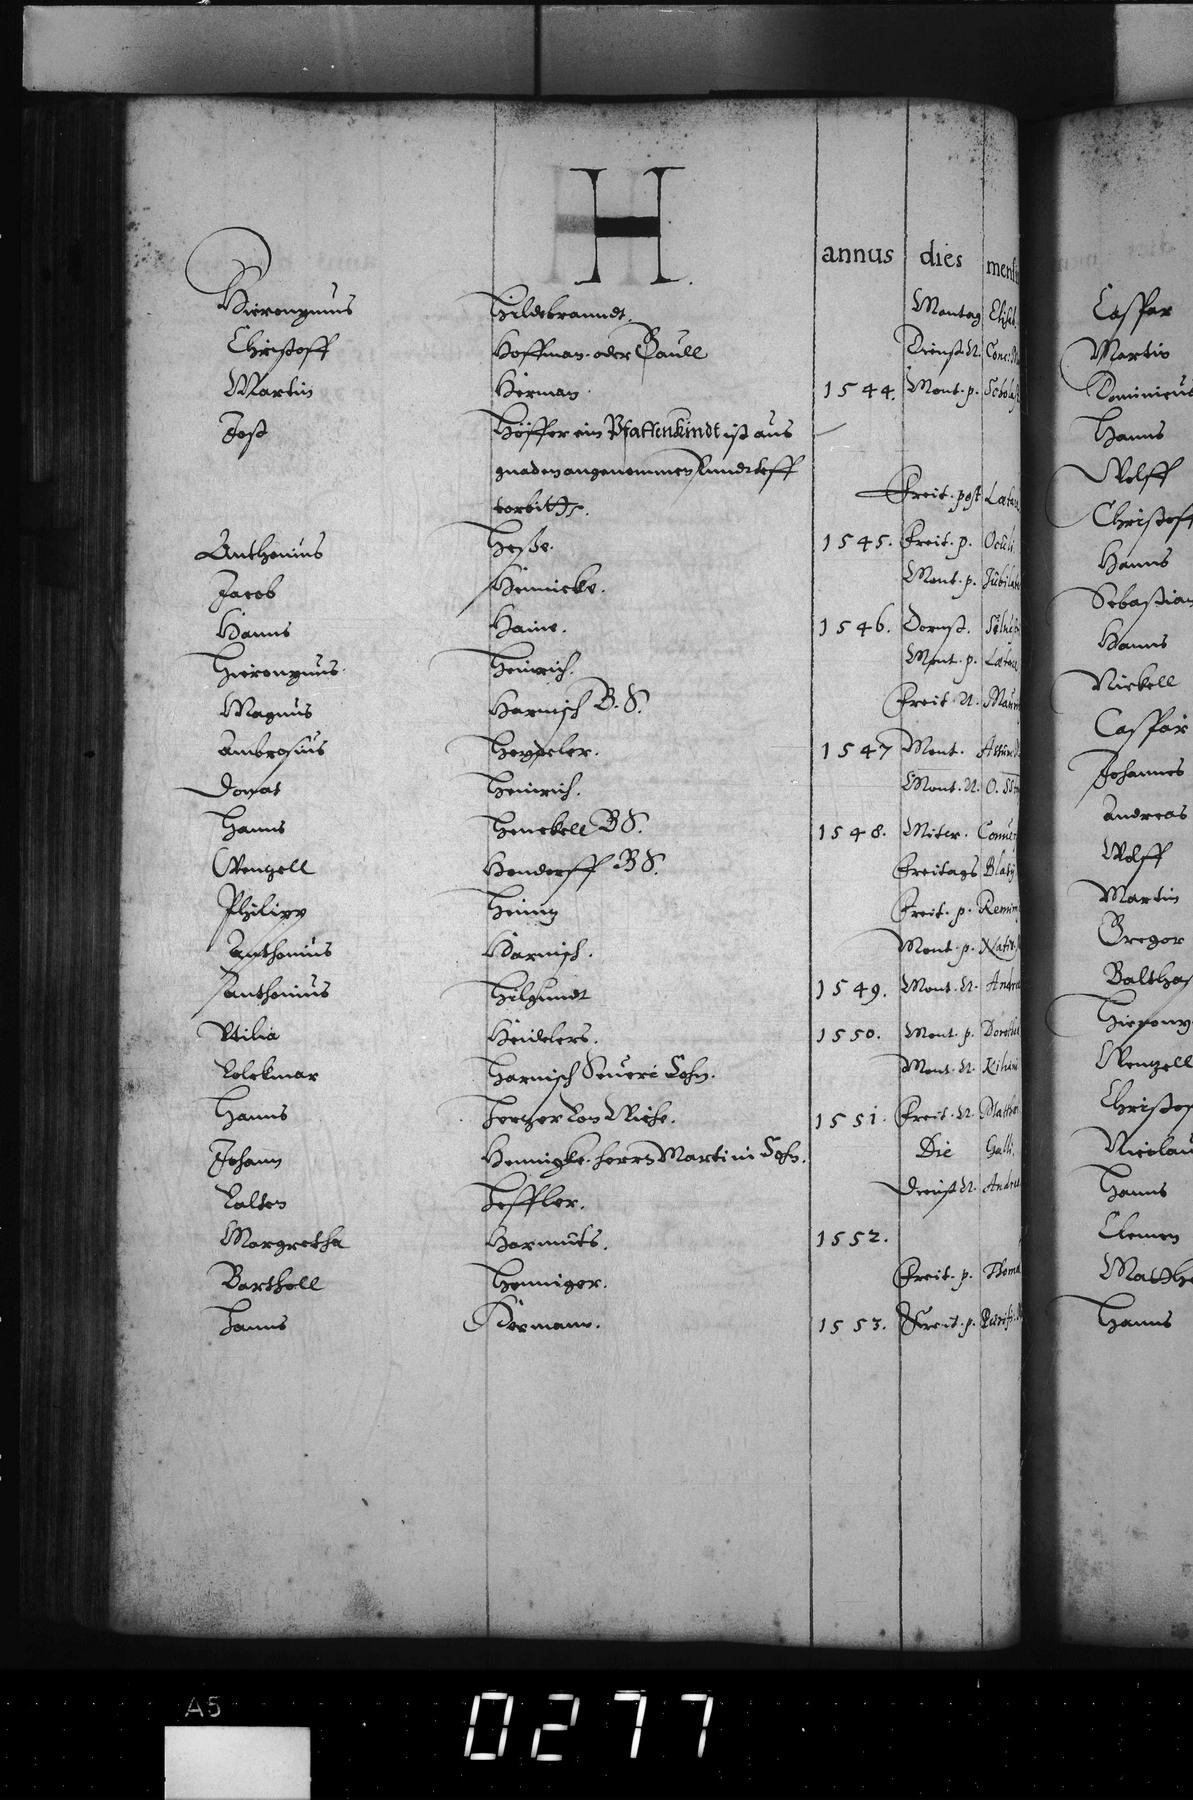 H.
annus dies mens
Hieronymus Hildebranndt. Montag Elisab.
Christoff Hoffman oder Paull Dienst. n. Conc: M
Martin Herman 1544. Mont. p. Schola
Jost Höffer ein Pfaffenkindt ist aus
gnaden angenommen
Freit. post Lætar
Anthonius Hesse. 1545. Freit. p. Oculi.
Jacob Heinicke. Mont. p. Jubilat
Hanns Haine. 1546. Dornst.
Hieronymus Heinrich. Mont. p. Lætar
Magnus Harnisch B.S. Freit. n. Mauri
Ambrosius Heydeler. 1547 Mont. Assum
Donat Heinrich. Mont. n. O. SS
Hanns Henckell BS. 1548. Mitw. Conver
Wenzell Hendorff BS. Freitags Blasy
Philipp Heinig Freit. p. Remin
Anthonius Harnisch. Mont. p. Nativ.
Anthonius Hilgundt 1549. Mont. n. Andre
Ottilia Heidelers. 1550. Mont. p. Doroth
Volckmar Harnisch Severi Sohn. Mont. n. Kiliani
Hanns Herger von Riese. 1551. Freit. n. Matthei
Johann Hennigke. Herrn Martini Sohn. Die Galli.
Valten Heffler. Dienst. n. Andre
Margretha Harmuts. 1552.
Barthell Henniger. Freit. p. Thoma
Hanns Hermann. 1553. Freit. p. Purif.
Caspar
Martin
Dominicus
Hanns
Wolff
Christoff
Hanns
Sebastian
Hanns
Nickell
Caspar
Johannes
Andreas
Wolff
Martin
Gregor
Balthas
Hierony
Wenzell
Christof
Nicolau
Hanns
Clemen
Matthe
Hanns
A5
0277